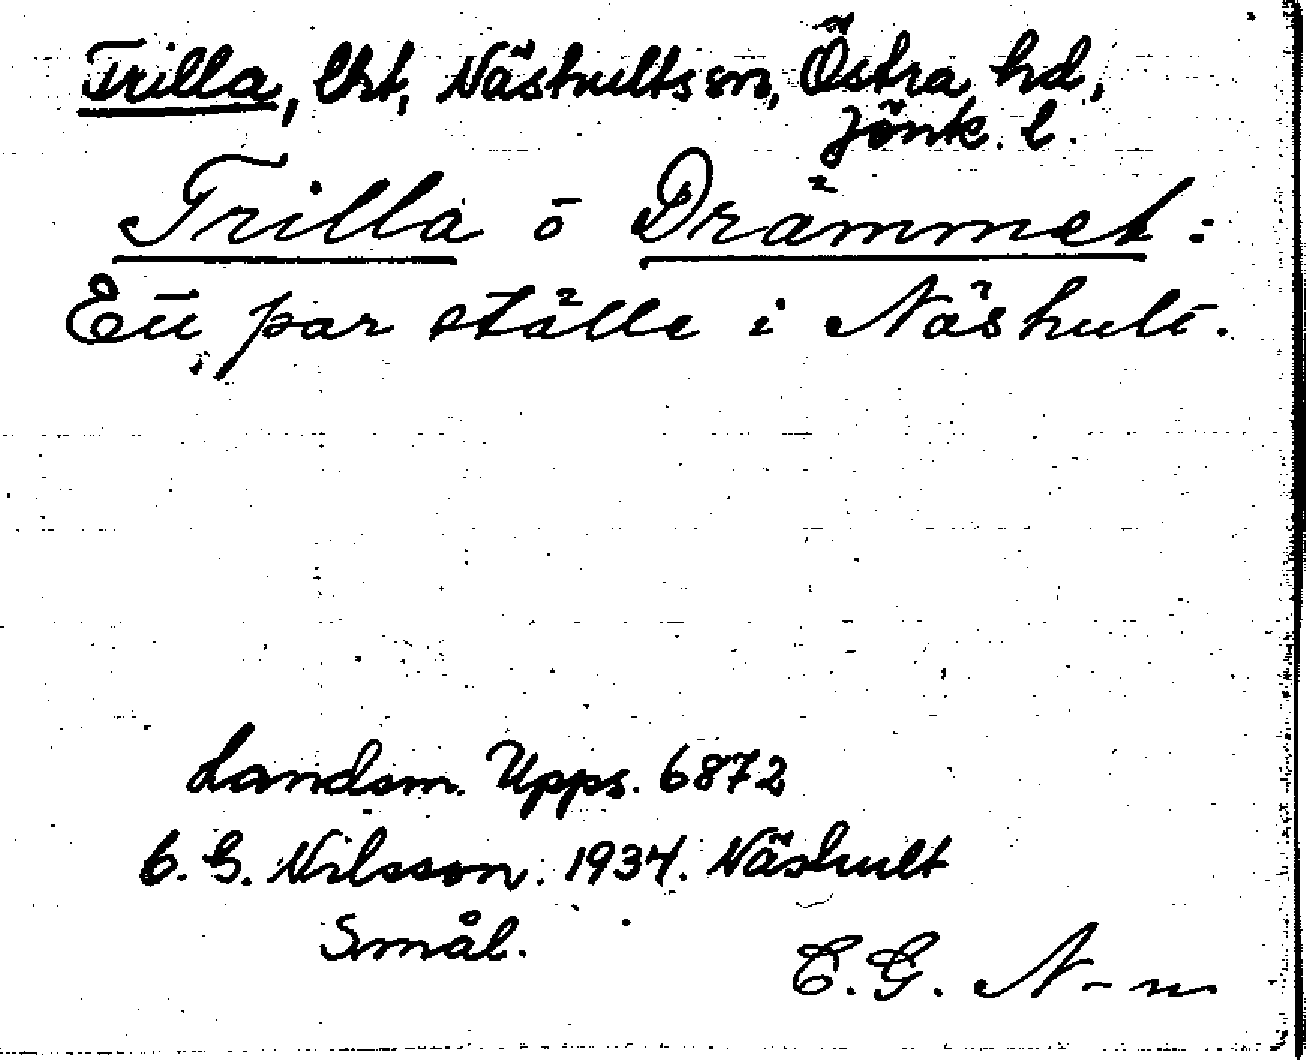 Trilla, lht, Näshults sn, Östra hd,
Jönk. l.
Trilla o Drämmet:
Ett par ställe i Näshult.
Landsm. Upps. 6872
C. G. Nilsson. 1934. Näshult
Smål.
C. G. N-n